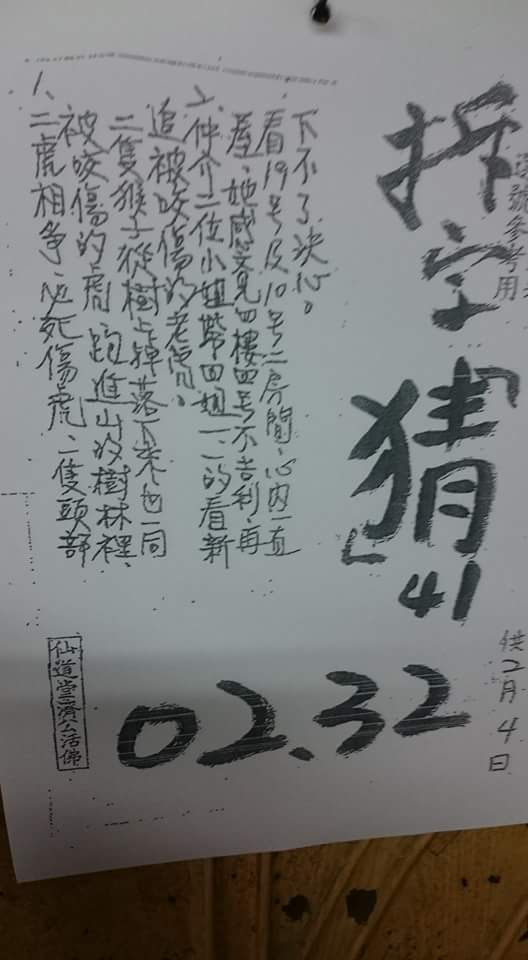 號參考用
供2月4日
拆字「猜」
41
02.32
1、二虎相爭、必死傷虎、二隻頭部
被咬傷的虎跑進山的樹林裡、
二隻猴子從樹上掉落下來也一同
追被咬傷的老虎。
2、仲介二位小姐帶四姐一一的看新
屋、她感覺見四樓四号不吉利、再
看19号及10号二房間、心內一直
下不了決心。
仙道堂濟公活佛